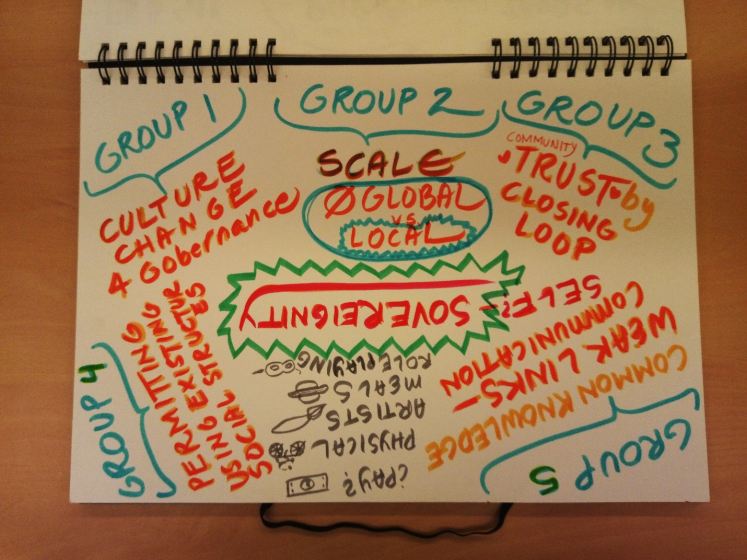 GROUP 1
CULTURE
CHANGE
4 Gobernance
GROUP 2
SCALE
Ø GLOBAL
VS
LOCAL
GROUP 3
COMMUNITY
TRUST by
CLOSING
LOOP
GROUP 4
PERMITTING
USING EXISTING
SOCIAL STRUCTURES
GROUP 5
COMMON KNOWLEDGE
WEAK LINKS -
COMMUNICATION
SELF? - SOVEREIGNITY
¿PAY?
PHYSICAL
ARTISTS
MEALS
ROLEPLAYING